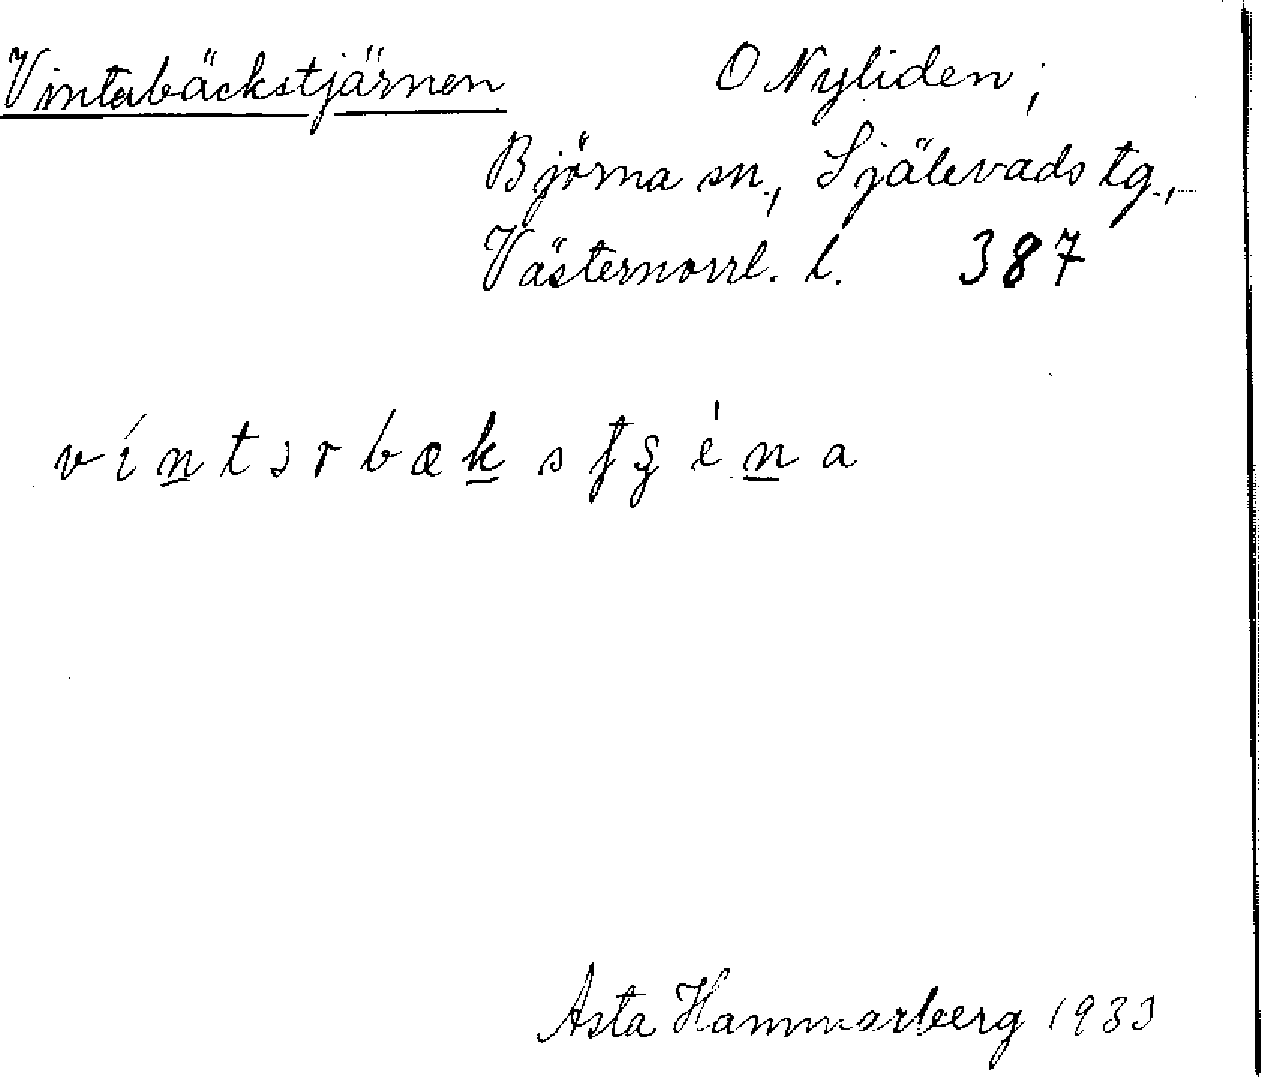 Vintabäckstjärnen O Nyliden;
Björna sn., Själevads tg.,
Västernorrl. l. 387
Asta Hammarberg 1933